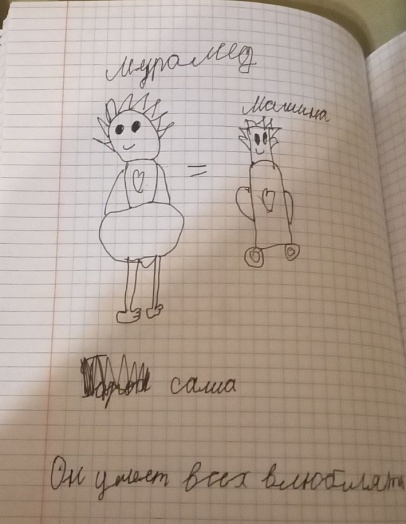 мурамед
машина
=
саша
Он умеет всех влюблять